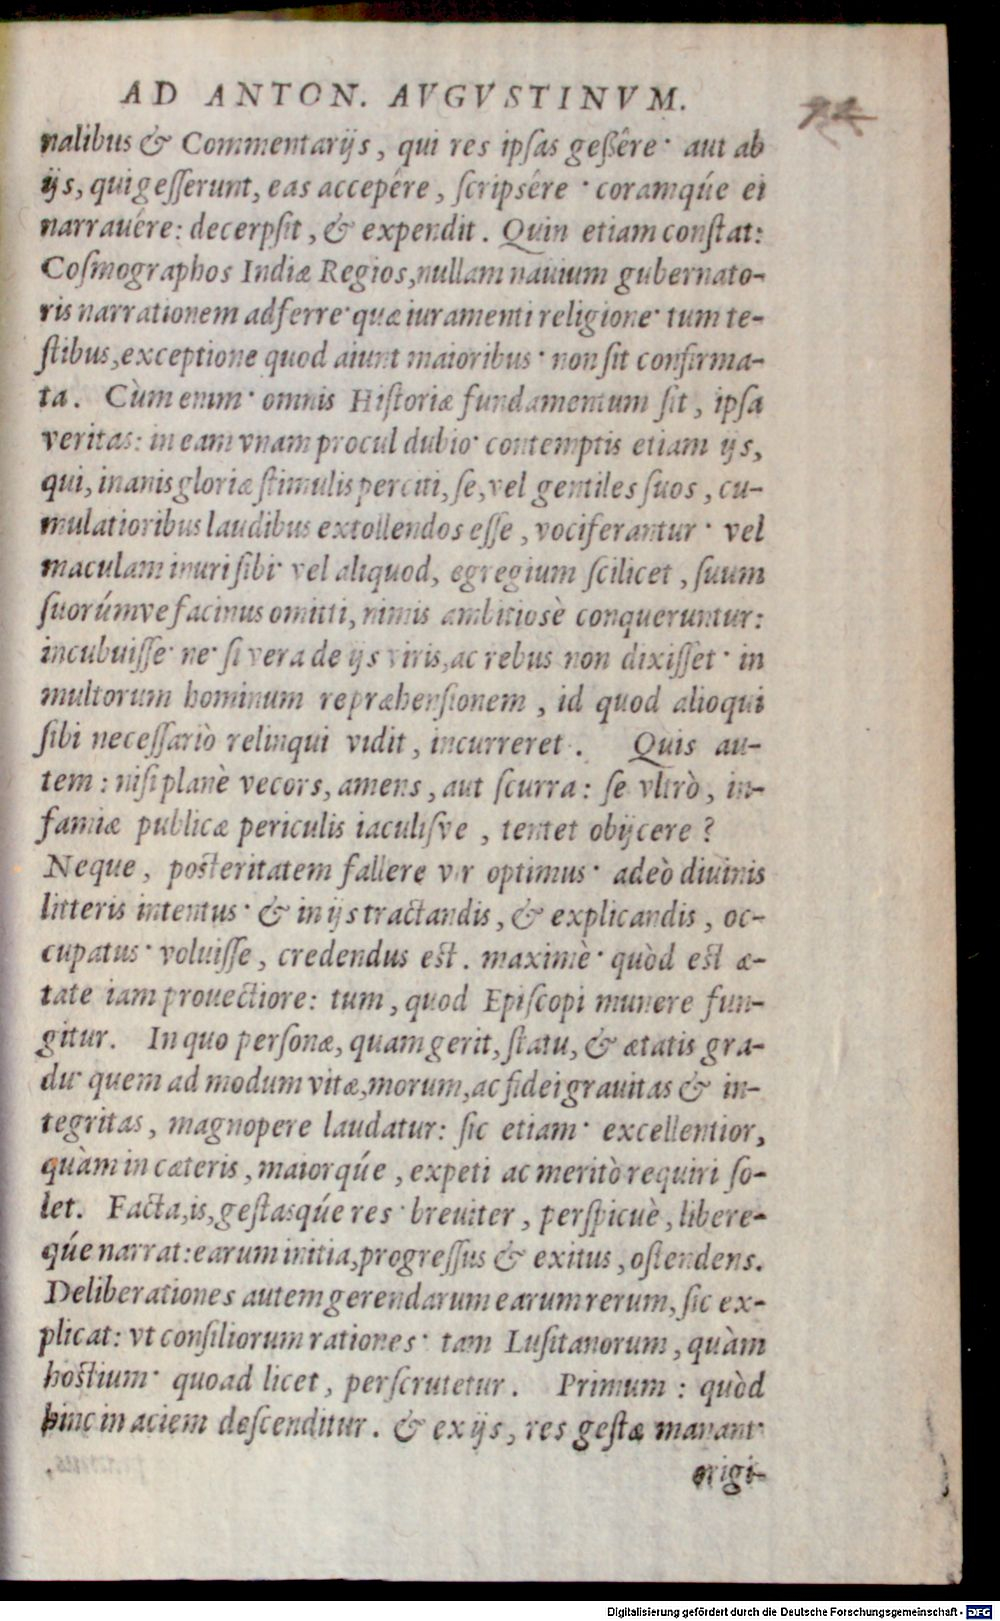 AD ANTON. AVGVSTINVM.
nalibus & Commentarijs, qui res ipſas geßêre· aut ab
ijs, qui geſſerunt, eas accepére, ſcripsére · coramq́ue ei
narrauére: decerpſit, & expendit. Quin etiam conſtat:
Coſmographos Indiæ Regios, nullam nauium gubernato-
ris narrationem adferre· quæ iuramenti religione· tum te-
ſtibus, exceptione quod aiunt maioribus· non ſit confirma-
ta. Cùm enim· omnis Hiſtoriæ fundamentum ſit, ipſa
veritas: in eam vnam procul dubio· contemptis etiam ijs,
qui, inanis gloriæ ſtimulis perciti, ſe, vel gentiles ſuos, cu-
mulatioribus laudibus extollendos eſſe, vociferantur· vel
maculam inuri ſibi· vel aliquod, egregium ſcilicet, ſuum
ſuorúmve facinus omitti, nimis ambitiosè conqueruntur:
incubuiſſe· ne· ſi vera de ijs viris, ac rebus non dixiſſet· in
multorum hominum repræhenſionem, id quod alioqui
ſibi neceſſariò relinqui vidit, incurreret. Quis au-
tem: niſi planè vecors, amens, aut ſcurra: ſe vltrò, in-
famiæ publicæ periculis iaculiſve, tentet obijcere?
Neque, poſteritatem fallere vir optimus· adeò diuinis
litteris intentus· & in ijs tractandis, & explicandis, oc-
cupatus· voluiſſe, credendus eſt. maximè· quòd eſt æ-
tate iam prouectiore: tum, quod Epiſcopi munere fun-
gitur. In quo perſonæ, quam gerit, ſtatu, & ætatis gra-
du· quem ad modum vitæ, morum, ac fidei grauitas & in-
tegritas, magnopere laudatur: ſic etiam· excellentior,
quàm in cæteris, maiorq́ue, expeti ac meritò requiri ſo-
let. Facta, is, geſtasq́ue res· breuiter, perſpicuè, libere-
q́ue narrat: earum initia, progreſſus & exitus, oſtendens.
Deliberationes autem gerendarum earum rerum, ſic ex-
plicat: vt conſiliorum rationes· tam Luſitanorum, quàm
hoſtium· quoad licet, perſcrutetur. Primum: quòd
hinc in aciem deſcenditur. & ex ijs, res geſtæ manant·
origi-
Digitalisierung gefördert durch die Deutsche Forschungsgemeinschaft - DFG